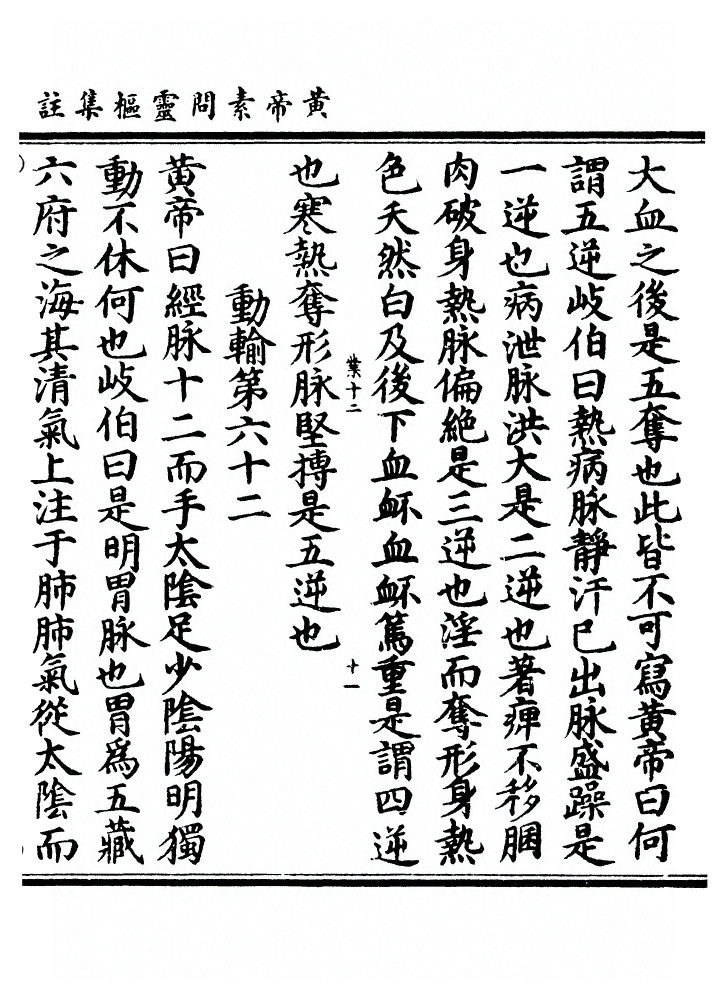 黃帝素問靈樞集註
大血之後是五奪也此皆不可寫黃帝曰何
謂五逆岐伯曰熱病脉靜汗已出脉盛躁是
一逆也病泄脉洪大是二逆也著痺不移䐃
肉破身熱脉偏絕是三逆也淫而奪形身熱
色夭然白及後下血衃血衃篤重是謂四逆
業十二
十一
也寒熱奪形脉堅搏是五逆也
動輸第六十二
黃帝曰經脉十二而手太陰足少陰陽明獨
動不休何也岐伯曰是明胃脉也胃爲五藏
六府之海其清氣上注于肺肺氣從太陰而